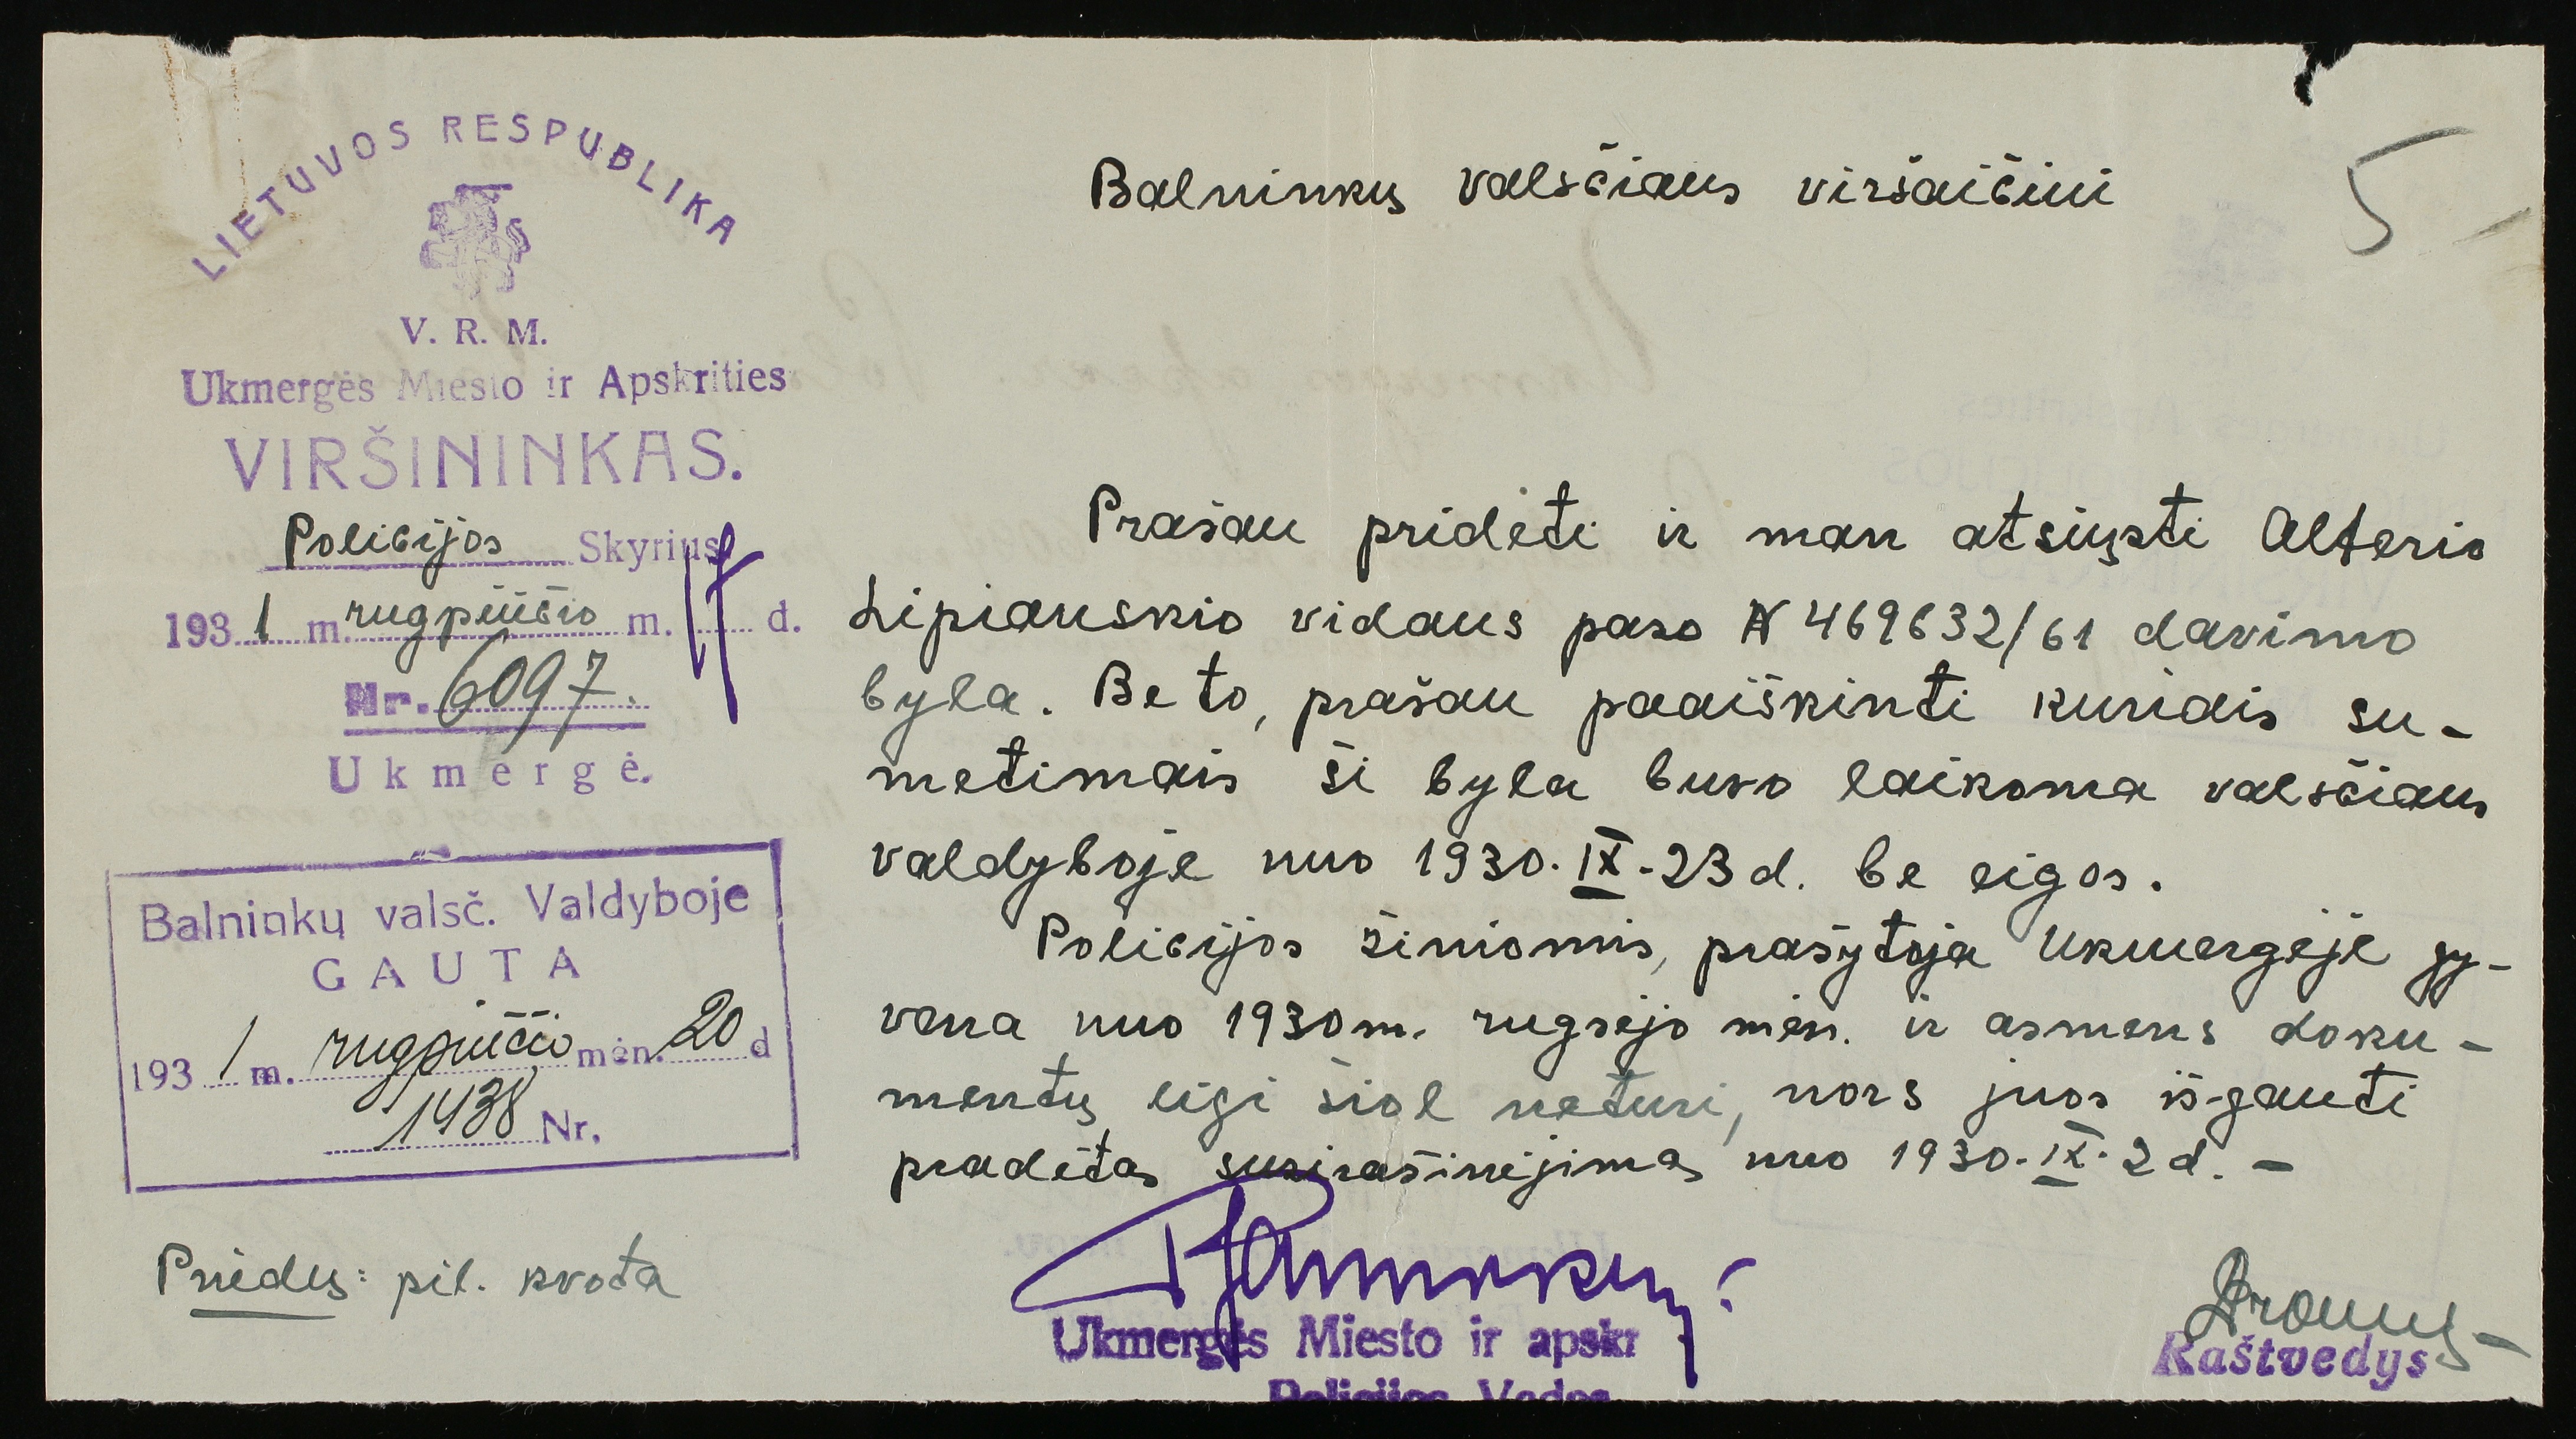 LIETUVOS RESPUBLIKA
V. R. M.
Ukmergės Miesto ir Apskrities
VIRŠININKAS.
Policijos Skyrius
1931 m. rugpiūčio m. 17 d.
Nr. 6097.
Ukmergė.
Balninkų valsč. Valdyboje
GAUTA
1931 m. rugpiučio mėn. 20 d
1438 Nr.
Priedų: pil. kvota
5
Balninkų valsčiaus viršaičiui
Prašau pridėti ir man atsiųsti Alterio
Lipiauskio vidaus paso N 469632/61 davimo
byla. Be to, prašau paaiškinti kuriais su-
metimais ši byla buvo laikoma valsčiaus
valdyboje nuo 1930.IX.23 d. be eigos.
Policijos žiniomis, prašytoja Ukmergėje gy-
vena nuo 1930 m. rugsėjo mėn. ir asmens doku-
mentų ligi šiol neturi, nors juos išgauti
pradėtas susirašinėjimas nuo 1930.IX.2 d. -
Ukmergės Miesto ir apskr
Policijos Vadas
Raštvedys